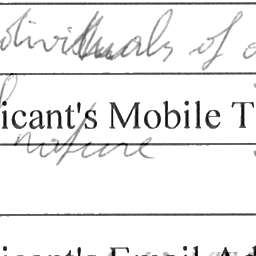 dividuals of
icant's Mobile T
nature
icant's Email Ad